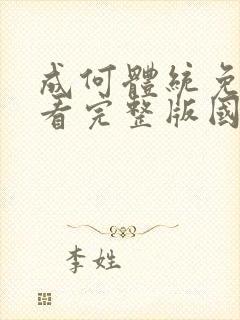 成何體統免
看完整版國
李姓